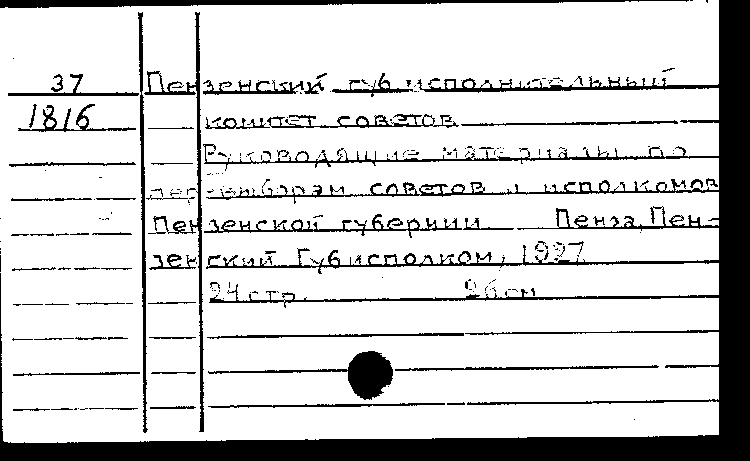 37 Пензенский губ исполнительный
1816 комитет советов
Руководящие материалы по
перевыборам советов и исполкомов
Пензенской губернии Пенза, Пен-
зенский Губисполком, 1927
24 стр. 26 см